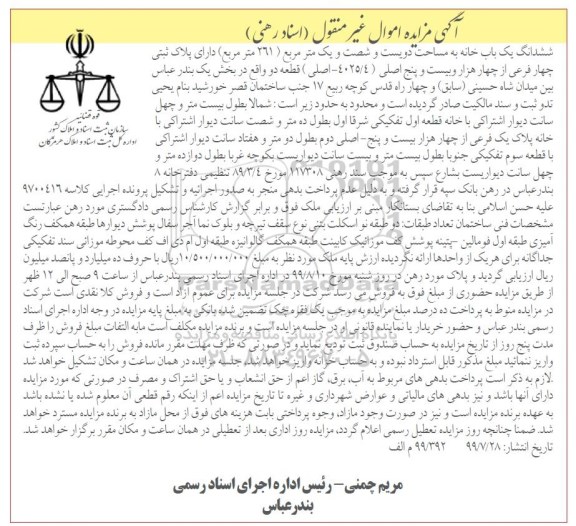 آگهی مزایده اموال غیر منقول (اسناد رهنی)
قوه قضائیه
سازمان ثبت اسناد و املاک کشور
اداره کل ثبت اسناد و املاک هرمزگان
ششدانگ یک باب خانه به مساحت دویست و شصت و یک متر مربع ( ۲۶۱ متر مربع) دارای پلاک ثبتی
چهار فرعی از چهار هزار وبیست و پنج اصلی ( ۴۰۲۵/۴-اصلی ) قطعه دو واقع در بخش یک بندر عباس
بین میدان شاه حسینی (سابق) و چهار راه قدس کوچه ربیع ۱۷ جنب ساختمان قصر خورشید بنام یحیی
تدو ثبت و سند مالکیت صادر گردیده است و محدود به حدود زیر است : شمالا بطول بیست متر و چهل
سانت دیوار اشتراکی با خانه قطعه اول تفکیکی شرقا اول بطول ده متر و شصت سانت دیوار اشتراکی با
خانه پلاک یک فرعی از چهار هزار بیست و پنج- اصلی دوم بطول دو متر و هفتاد سانت دیوار اشتراکی
با قطعه سوم تفکیکی جنوبا بطول بیست متر و بیست سانت دیواریست بکوچه غربا بطول دوازده متر و
چهل سانت دیواریست بشارع سپس به موجب سند رهنی ۱۱۷۳۰۸ مورخ ۸۹/۳/۴ تنظیمی دفترخانه ۸
بندرعباس در رهن بانک سپه قرار گرفته، و به دلیل عدم پرداخت بدهی منجر به صدور اجرائیه و تشکیل پرونده اجرایی کلاسه ۹۷۰۰۴۱۶
علیه حسن اسلامی بنا به تقاضای بستانکار مبنی بر ارزیابی ملک فوق و برابر گزارش کارشناس رسمی دادگستری مورد رهن عبارتست
مشخصات فنی ساختمان تعداد طبقات: دو طبقه نو اسکلت بتنی نوع سقف تیرچه و بلوک نما آجر سفال پوشش دیوارها طبقه همکف رنگ
آمیزی طبقه اول فومالین -پتینه پوشش کف موزائیک کابینت طبقه همکف گالوانیزه طبقه اول ام دی اف کف محوطه موزائی سند تفکیکی
جداگانه برای هریک از واحدها ارائه نگردیده ارزش پایه ملک مورد نظر به مبلغ ۱۰/۵۰۰/۰۰۰/۰۰۰ریال با حروف ده میلیارد و پانصد میلیون
ریال ارزیابی گردید و پلاک مورد رهن در روز شنبه مورخ ۹۹/۸/۱۰ در اداره اجرای اسناد رسمی بندرعباس از ساعت ۹ صبح الی ۱۲ ظهر
از طریق مزایده حضوری از مبلغ فوق به فروش می رسد شرکت در جلسه مزایده برای عموم آزاد است و فروش کلا نقدی است شرکت
در مزایده منوط به پرداخت ده درصد مبلغ مزایده به موجب یک فقره چک تضمین شده بانکی به مبلغ پایه مزایده در وجه اداره اجرای اسناد
رسمی بندر عباس و حضور خریدار یا نماینده قانونی او در جلسه مزایده است و برنده مزایده مکلف است مابه التفات مبلغ فروش را ظرف
مدت پنج روز از تاریخ مزایده به حساب صندوق ثبت تودیع نماید و در صورتی که ظرف مهلت مقرر مانده فروش را به حساب سپرده ثبت
واریز ننمائید مبلغ مذکور قابل استرداد نبوده و به حساب خزانه واریز خواهد شد جلسه مزایده در همان ساعت و مکان تشکیل خواهد شد
.لازم به ذکر است پرداخت بدهی های مربوط به آب، برق، گاز اعم از حق انشعاب و یا حق اشتراک و مصرف در صورتی که مورد مزایده
دارای آنها باشد و نیز بدهی های مالیاتی و عوارض شهرداری و غیره تا تاریخ مزایده اعم از اینکه رقم قطعی آن معلوم شده یا نشده باشد
به عهده برنده مزایده است و نیز در صورت وجود مازاد، وجوه پرداختی بابت هزینه های فوق از محل مازاد به برنده مزایده مسترد خواهد
شد. ضمنا چنانچه روز مزایده تعطیل رسمی اعلام گردد، مزایده روز اداری بعد از تعطیلی در همان ساعت و مکان مقرر برگزار خواهد شد.
تاریخ انتشار: ۹۹/۷/۲۸ ۹۹/۳۹۲ م الف
مریم چمنی – رئیس اداره اجرای اسناد رسمی
بندرعباس